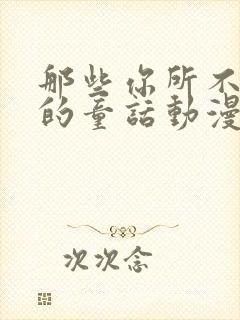 那些你所不
的童話動漫
次次念